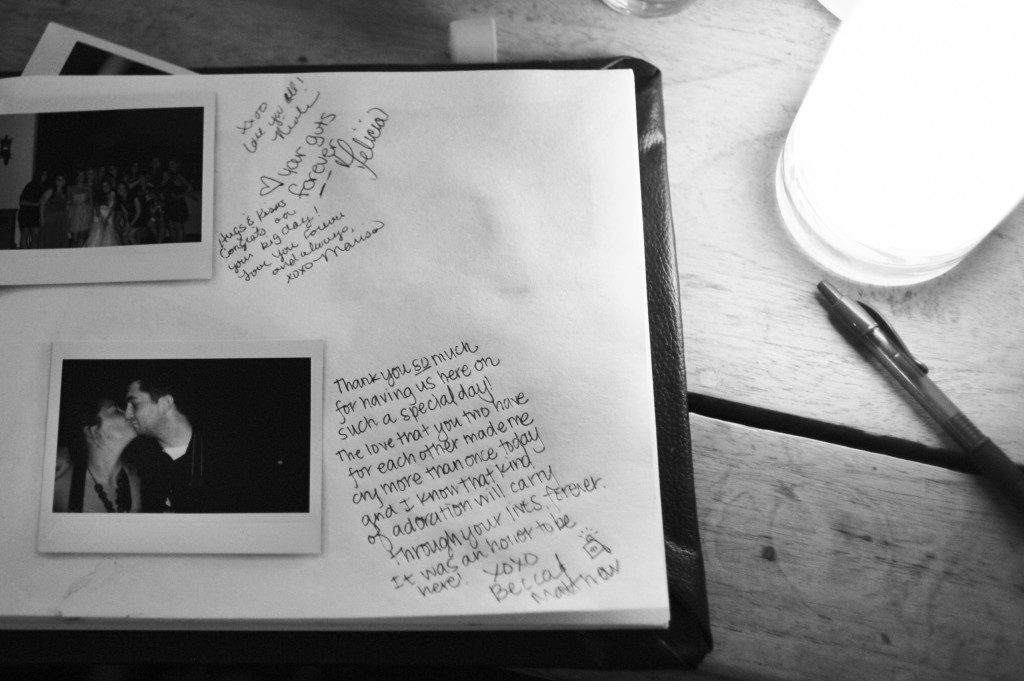 xoxo
love you all!
Nicole
♡ your guts
forever
— Felicia
Hugs & Kisses
Congrats on
your big day!
Love you forever
and always,
xoxo-Marisa
Thank you so much
for having us here on
such a special day!
The love that you two have
for each other made me
cry more than once today
and I know that kind
of adoration will carry
through your lives forever.
It was an honor to be
here! xoxo
Becca &
Matthew